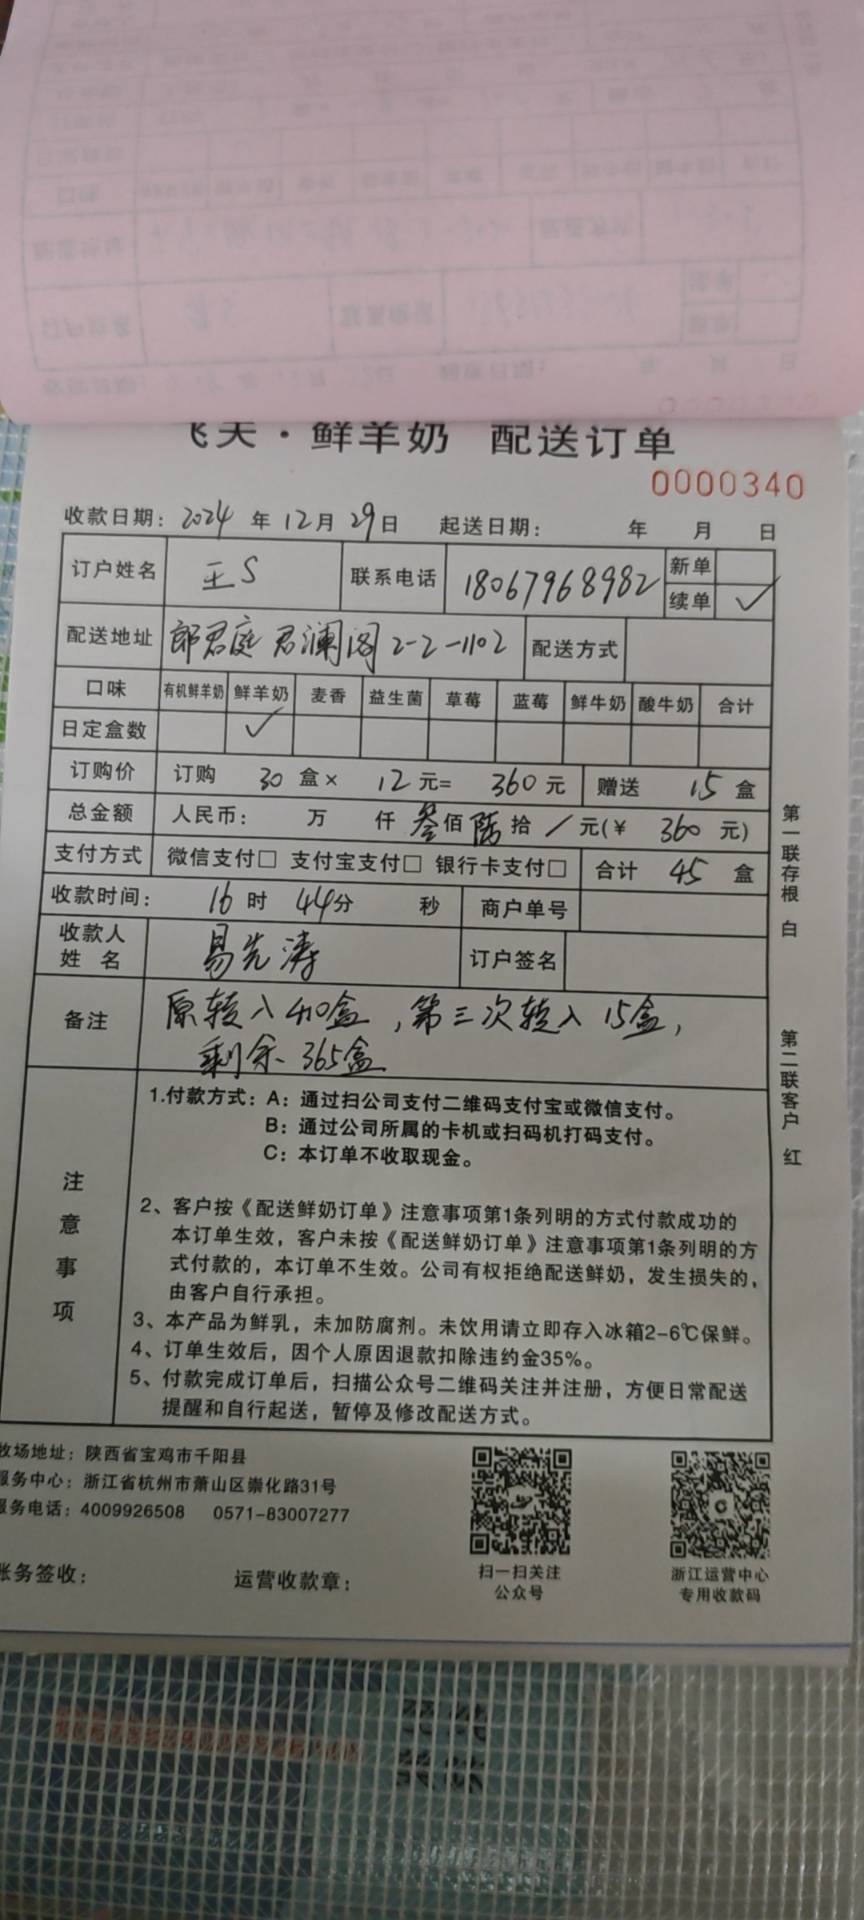 飞天·鲜羊奶 配送订单
0000340
收款日期：2024 年 12月 29日 起送日期： 年 月 日
订户姓名 王S 联系电话 18067968982 新单
续单 ✓
配送地址 郎君庭 君澜阁 2-2-1102 配送方式
口味 有机鲜羊奶 鲜羊奶 麦香 益生菌 草莓 蓝莓 鲜牛奶 酸牛奶 合计
日定盒数 ✓
订购价 订购 30 盒× 12 元= 360 元 赠送 15 盒
总金额 人民币： 万 仟 叁佰 陆拾 / 元(¥ 360 元)
支付方式 微信支付□ 支付宝支付□ 银行卡支付□ 合计 45 盒
收款时间： 16 时 44分 秒 商户单号
收款人
姓 名 易先涛 订户签名
备注 原转入410盒，第三次转入15盒，
剩余365盒
注意事项
1.付款方式：A：通过扫公司支付二维码支付宝或微信支付。
B：通过公司所属的卡机或扫码机打码支付。
C：本订单不收取现金。
2、客户按《配送鲜奶订单》注意事项第1条列明的方式付款成功的
本订单生效，客户未按《配送鲜奶订单》注意事项第1条列明的方
式付款的，本订单不生效。公司有权拒绝配送鲜奶，发生损失的，
由客户自行承担。
3、本产品为鲜乳，未加防腐剂。未饮用请立即存入冰箱2-6℃保鲜。
4、订单生效后，因个人原因退款扣除违约金35%。
5、付款完成订单后，扫描公众号二维码关注并注册，方便日常配送
提醒和自行起送，暂停及修改配送方式。
第一联存根 白
第二联客户 红
牧场地址：陕西省宝鸡市千阳县
服务中心：浙江省杭州市萧山区崇化路31号
服务电话：4009926508 0571-83007277
账务签收： 运营收款章：
扫一扫关注
公众号
浙江运营中心
专用收款码